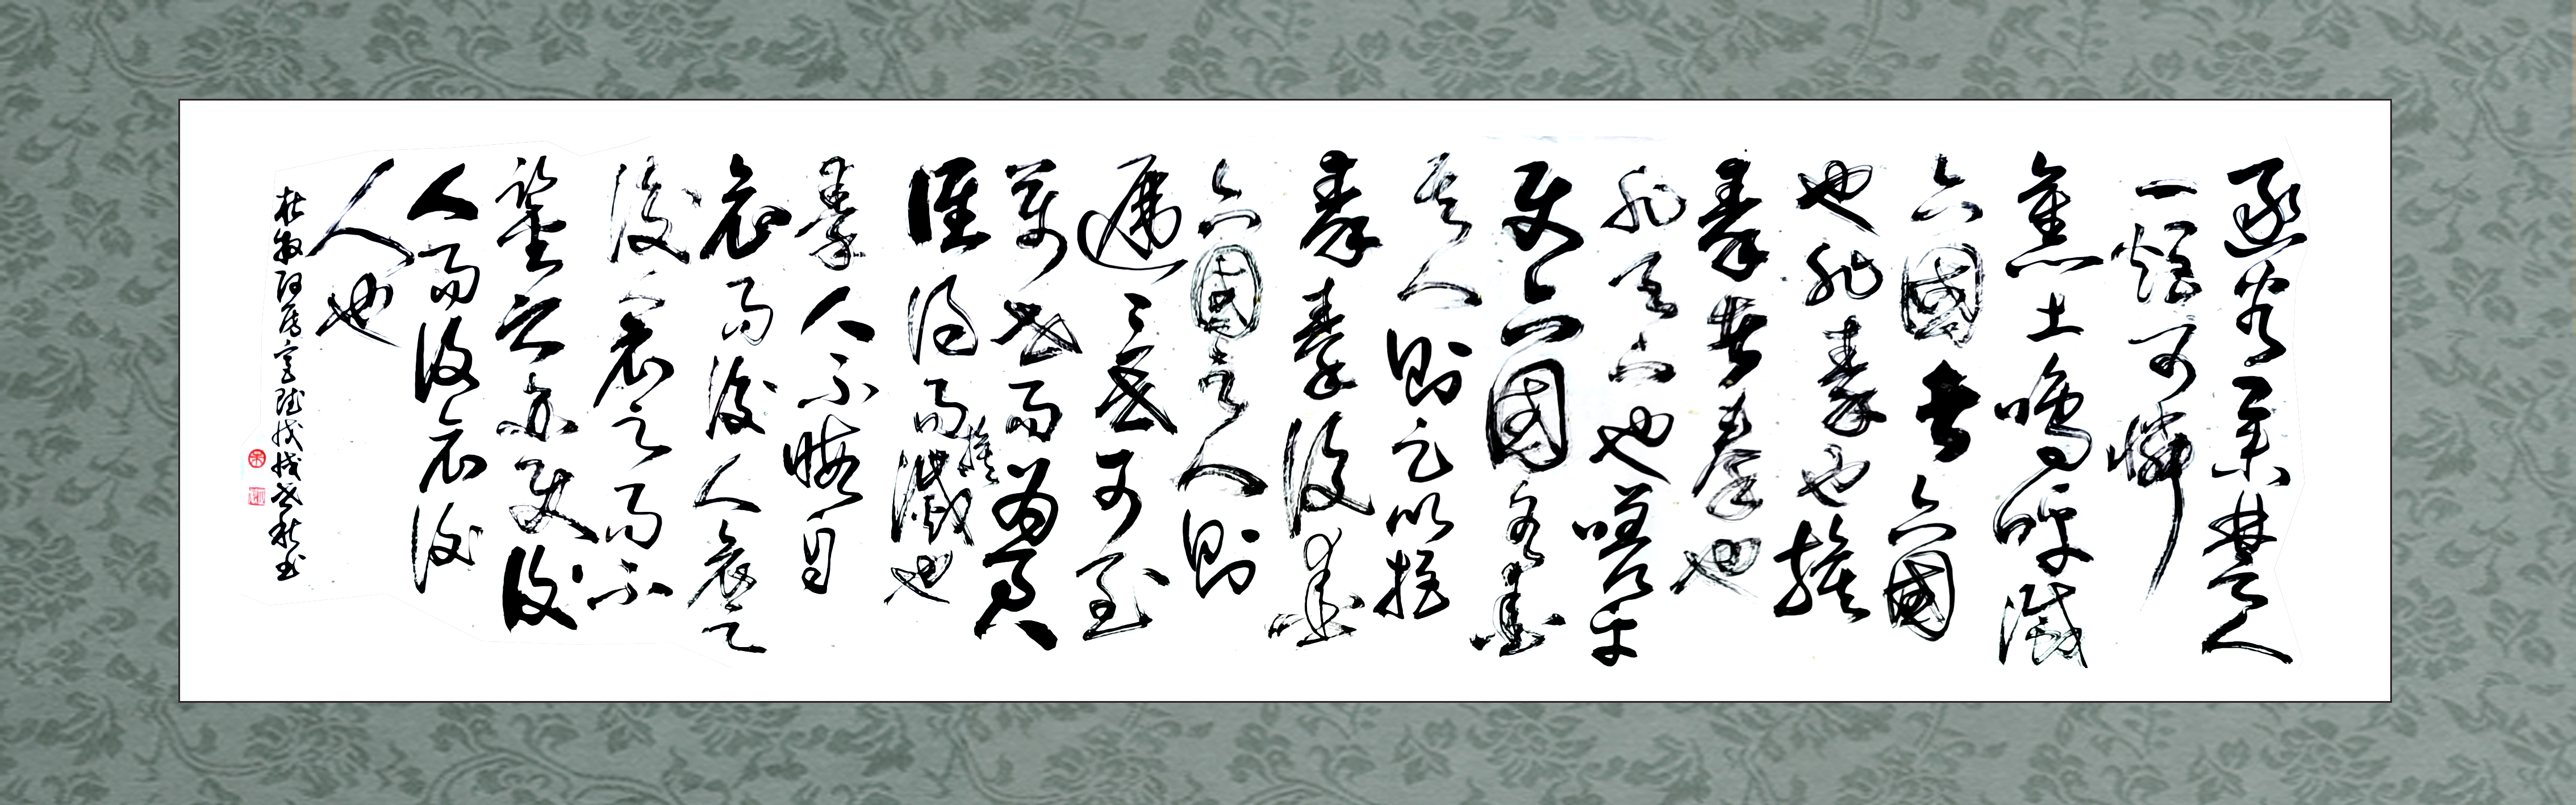 函谷舉楚人
一炬可憐
焦土嗚呼滅
六國者六國
也非秦也族
秦者秦也
非天下也嗟乎
使六國各愛
其人則足以拒
秦秦復愛
六國之人則
遞三世可至
萬世而為君
誰得而族滅也
秦人不暇自
哀而後人哀之
後人哀之而不
鑒之亦使後
人而復哀後
人也
杜牧阿房宮賦戊戌